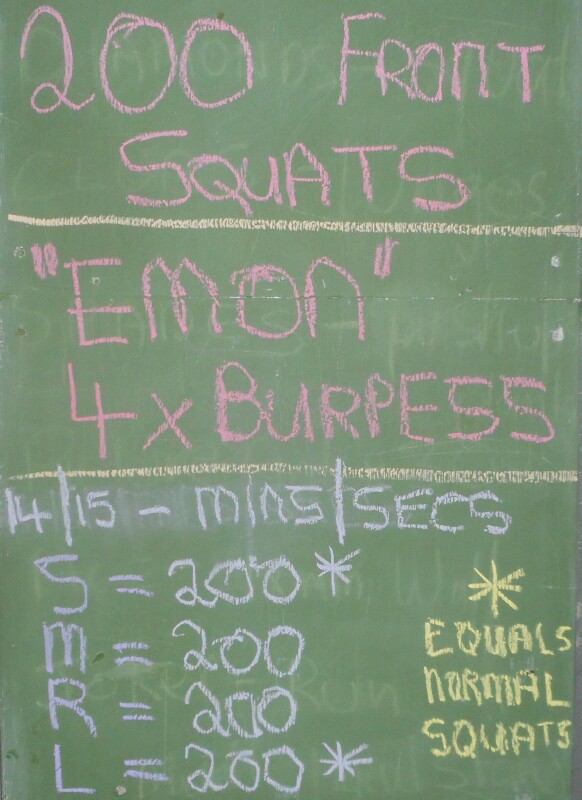 200 FRONT
SQUATS
"EMON"
4 x BURPESS
14/15 - MINS/SECS
S = 200 *
M = 200
R = 200
L = 200 *
*
EQUALS
NORMAL
SQUATS